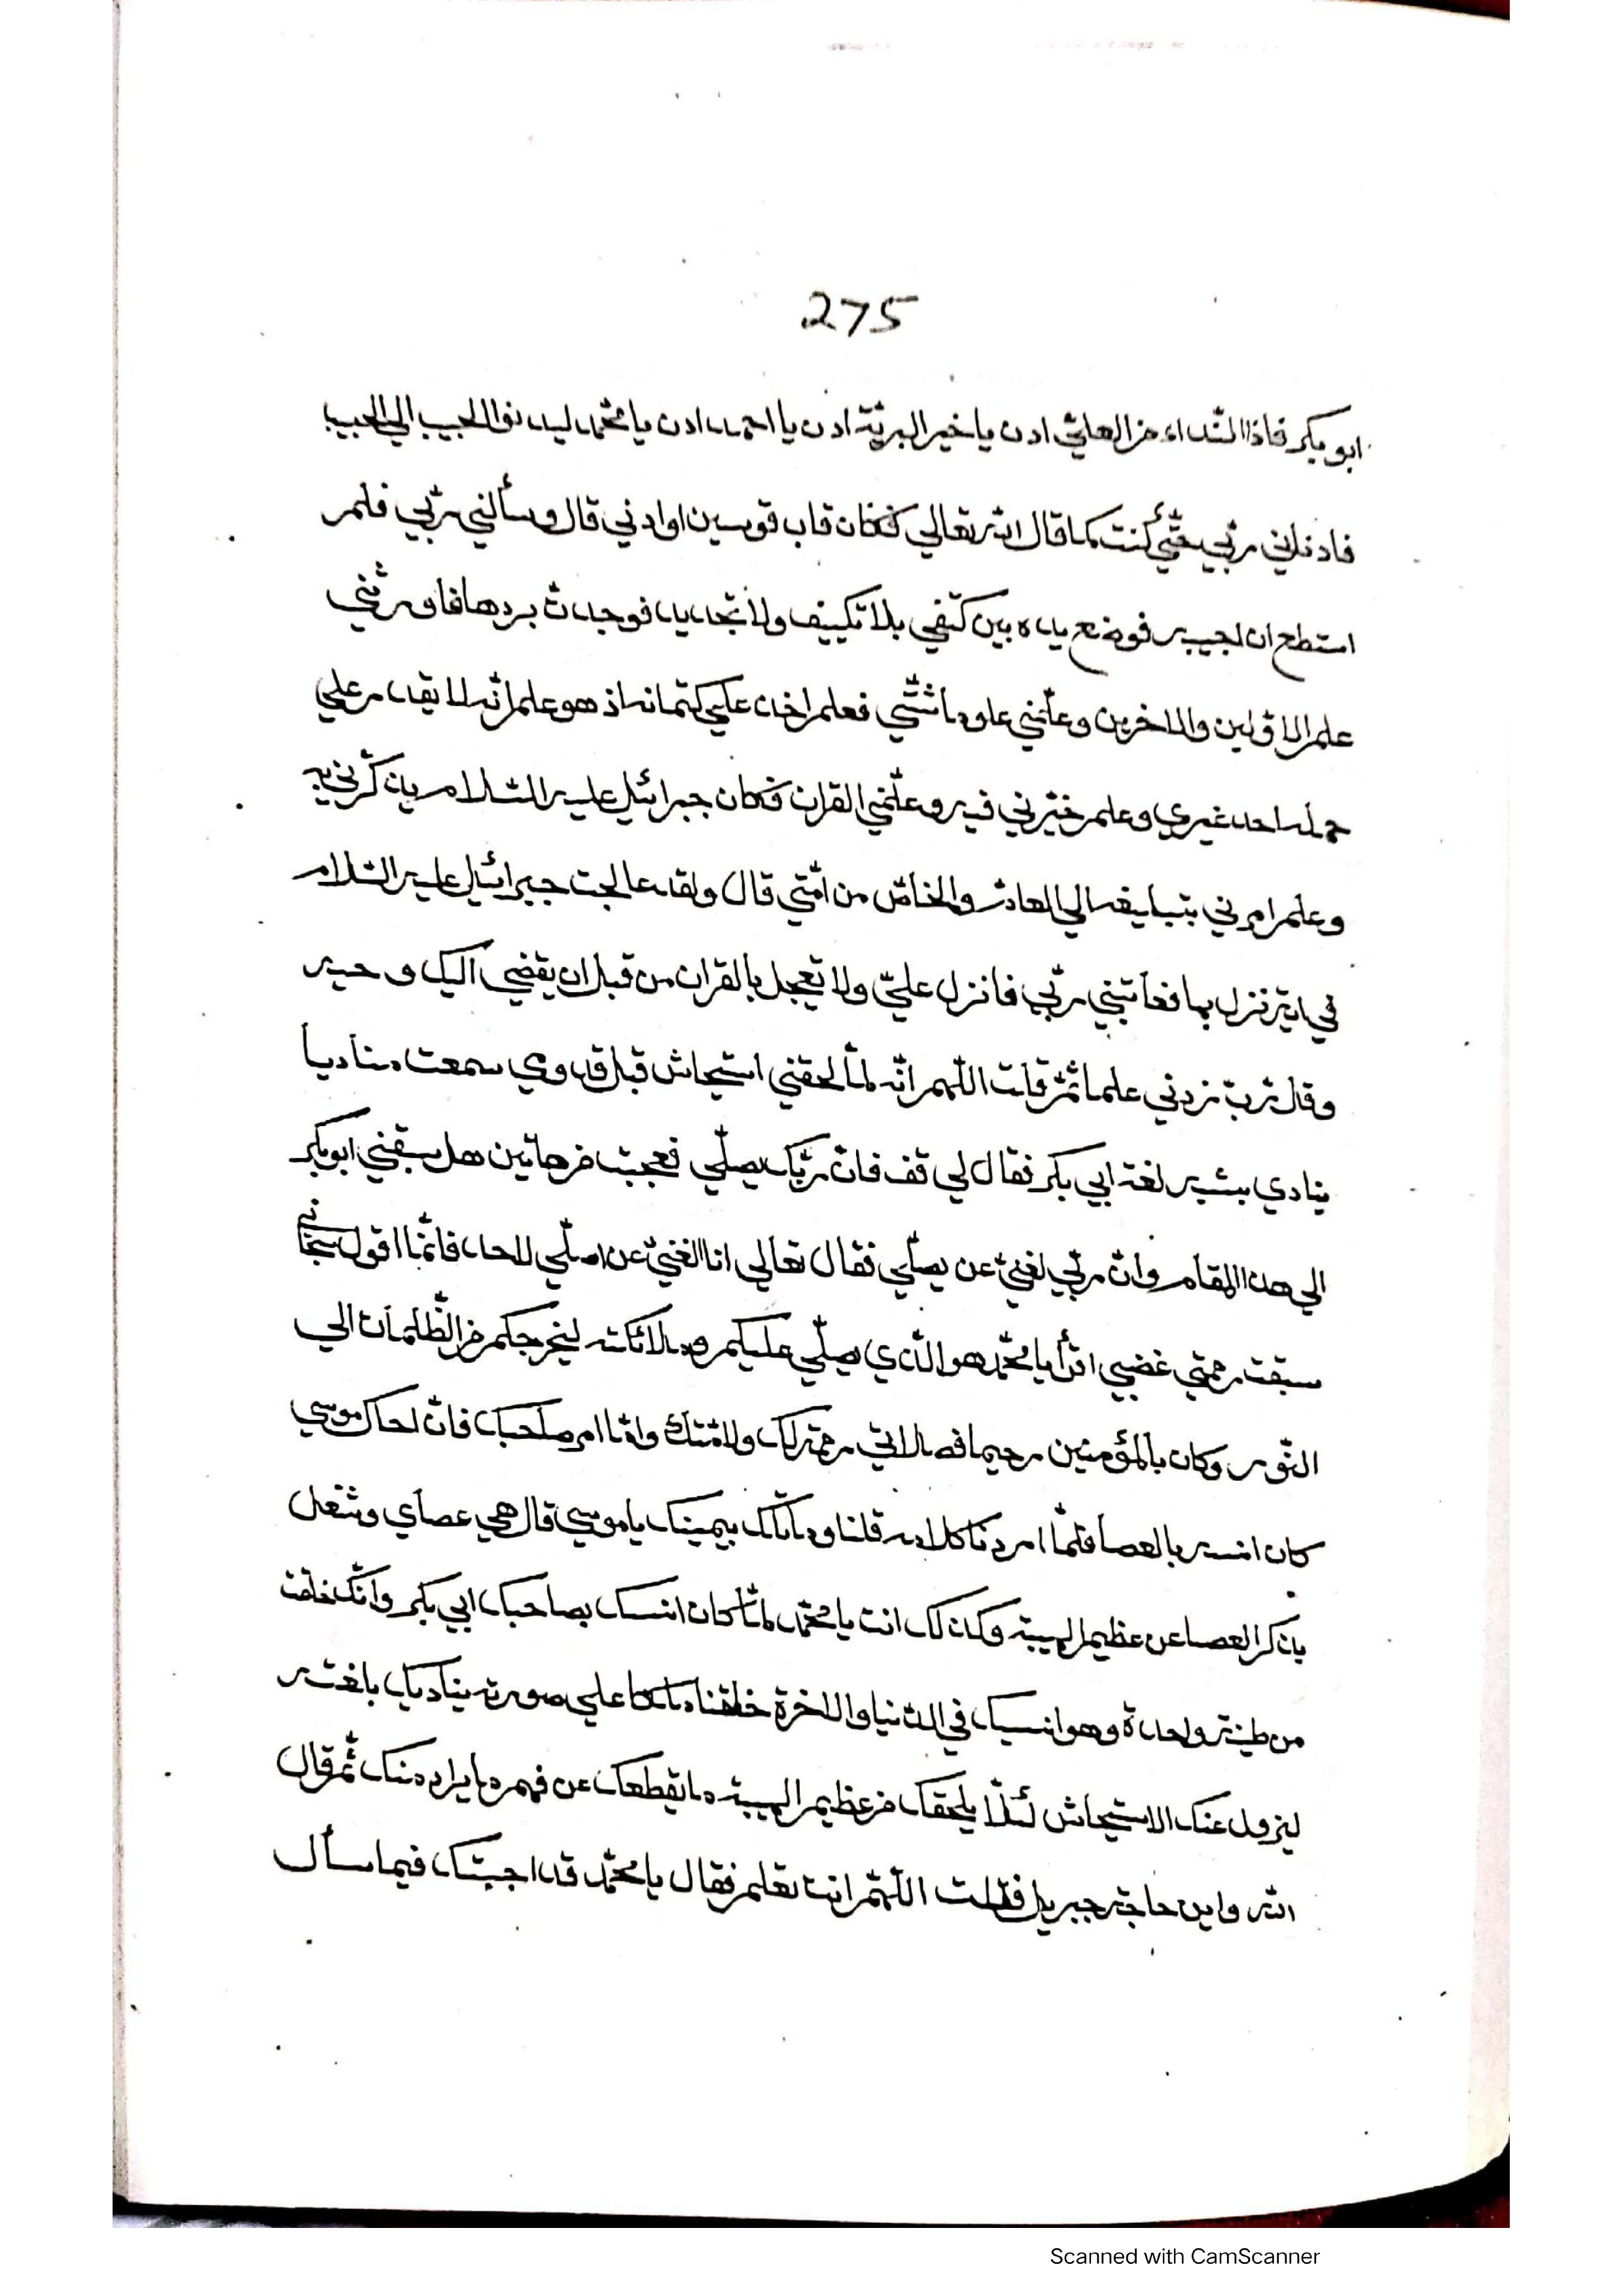 275
ابو بكر فاذا النداء من العلي ادن يا خير البرية ادن يا احمد ادن يا محمد ليدنوا الحبيب الي الحبيب
فادناني ربي حتي كنت كما قال الله تعالي فكان قاب قوسين او ادني قال وسألني ربي فلم
استطع ان اجيبه فوضع يده بين كتفي بلا تكييف ولا تحديد فوجدت بردها فاورثني
علم الاولين والاخرين وعلمني علوما شتي فعلم اخذ علي كتمانه اذ هو علم انه لا يقدر علي
حمله احد غيري وعلم خيرني فيه وعلمني القران فكان جبرائيل عليه السلام يذكرني به
وعلم امرني بتبليغه الي العام والخاص من امتي قال ولقد عالجت جبرائيل عليه السلام
في اية نزل بها فعاتبني ربي فانزل علي ولا تعجل بالقران من قبل ان يقضي اليك وحيه
وقل رب زدني علما ثم قلت اللهم انه لما لحقني استيحاش قبل قدومي سمعت مناديا
ينادي بشبه لغة ابي بكر فقال لي قف فان ربك يصلي فعجبت من هاتين هل سبقني ابو بكر
الي هذا المقام وان ربي لغني عن يصلي فقال تعالي انا الغني عن اصلي لاحد فانما اقول سبحاني
سبقت رحمتي غضبي اقرأ يا محمد هو الذي يصلي عليكم وملائكته ليخرجكم من الظلمات الي
النور وكان بالمؤمنين رحيما فصلاتي رحمة لك ولامتك واما امر صاحبك فان اخاك موسي
كان انسه بالعصا فلما اردنا كلامه قلنا وما تلك بيمينك يا موسي قال هي عصاي وشغل
بذكر العصا عن عظيم الهيبة وكذلك انت يا محمد لما كان انسك بصاحبك ابي بكر وانك خلقت
من طينة واحدة وهو انيسك في الدنيا والاخرة خلقنا ملكا علي صورته يناديك بلغته
ليزول عنك الاستيحاش لئلا يلحقك من عظيم الهيبة ما يقطعك عن فهم ما يراد منك ثم قال
الله واين حاجة جبريل فقلت اللهم انت تعلم فقال يا محمد قد اجبتك فيما سأل
Scanned with CamScanner